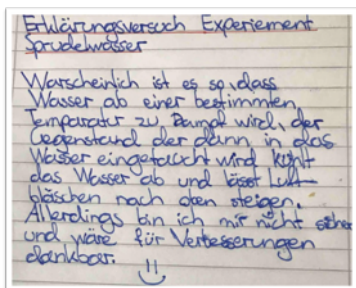 Erklärungsversuch Experiement
Sprudelwasser
Warscheinlich ist es so, dass
Wasser ab einer bestimmten
Temparatur zu Dampf wird, der
Gegenstand der dann in das
Wasser eingetaucht wird kühlt
das Wasser ab und lässt Luft-
bläschen nach oben steigen.
Allerdings bin ich mir nicht sicher
und wäre für Verbesserungen
dankbar.